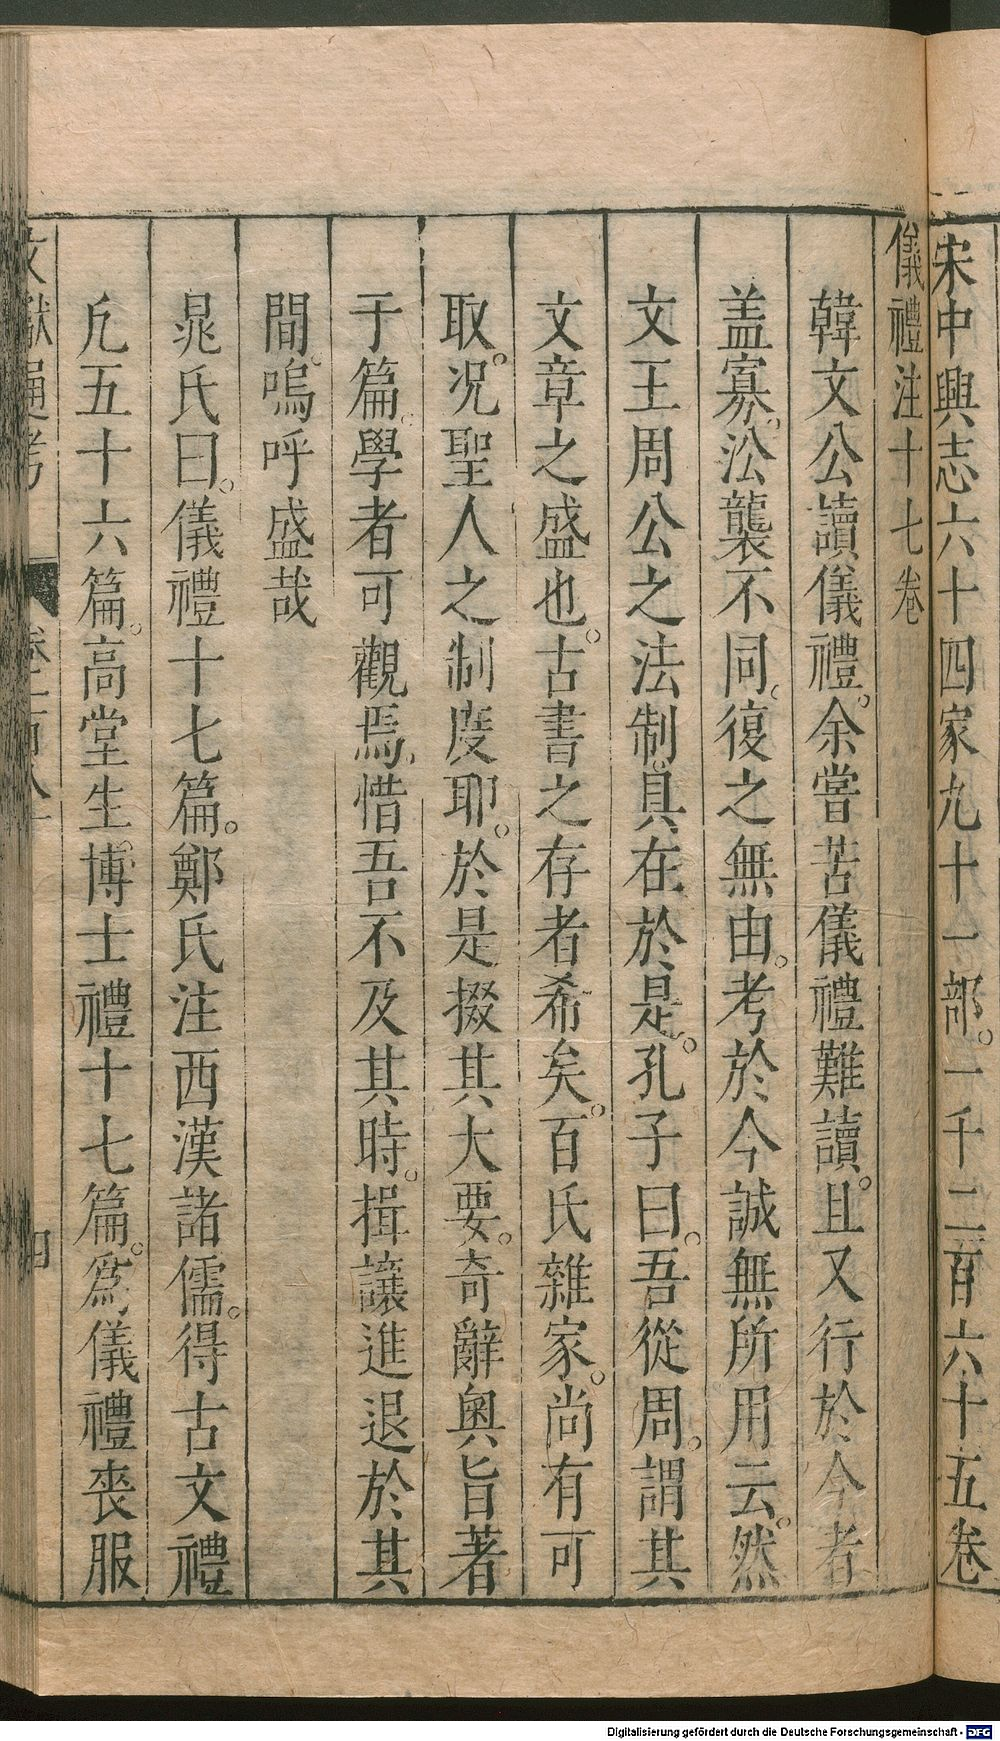 宋中興志六十四家九十一部。一千二百六十五卷
儀禮注十七卷
韓文公讀儀禮。余嘗苦儀禮難讀。且又行於今者
盖寡。㳂襲不同。復之無由。考於今誠無所用云。然
文王周公之法制具在於是。孔子曰。吾從周。謂其
文章之盛也。古書之存者希矣。百氏雜家。尚有可
取。况聖人之制度耶。於是掇其大要。奇辭奥旨著
于篇。學者可觀焉。惜吾不及其時。揖讓進退於其
間。嗚呼盛哉
晁氏曰。儀禮十七篇。鄭氏注西漢諸儒。得古文禮
凡五十六篇。高堂生。博士禮十七篇。爲儀禮喪服
文獻通考 卷一百八十 四
Digitalisierung gefördert durch die Deutsche Forschungsgemeinschaft - DFG